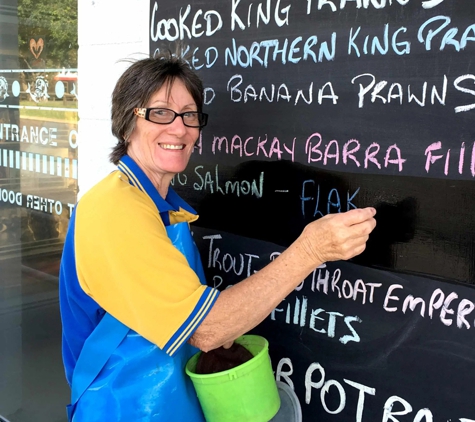 COOKED KING PRAWNS
COOKED NORTHERN KING PRA
BANANA PRAWNS
MACKAY BARRA FILL
SALMON - FLAK
TROUT - THROAT EMPER
FILLETS
POT
ENTRANCE
OTHER DOOR